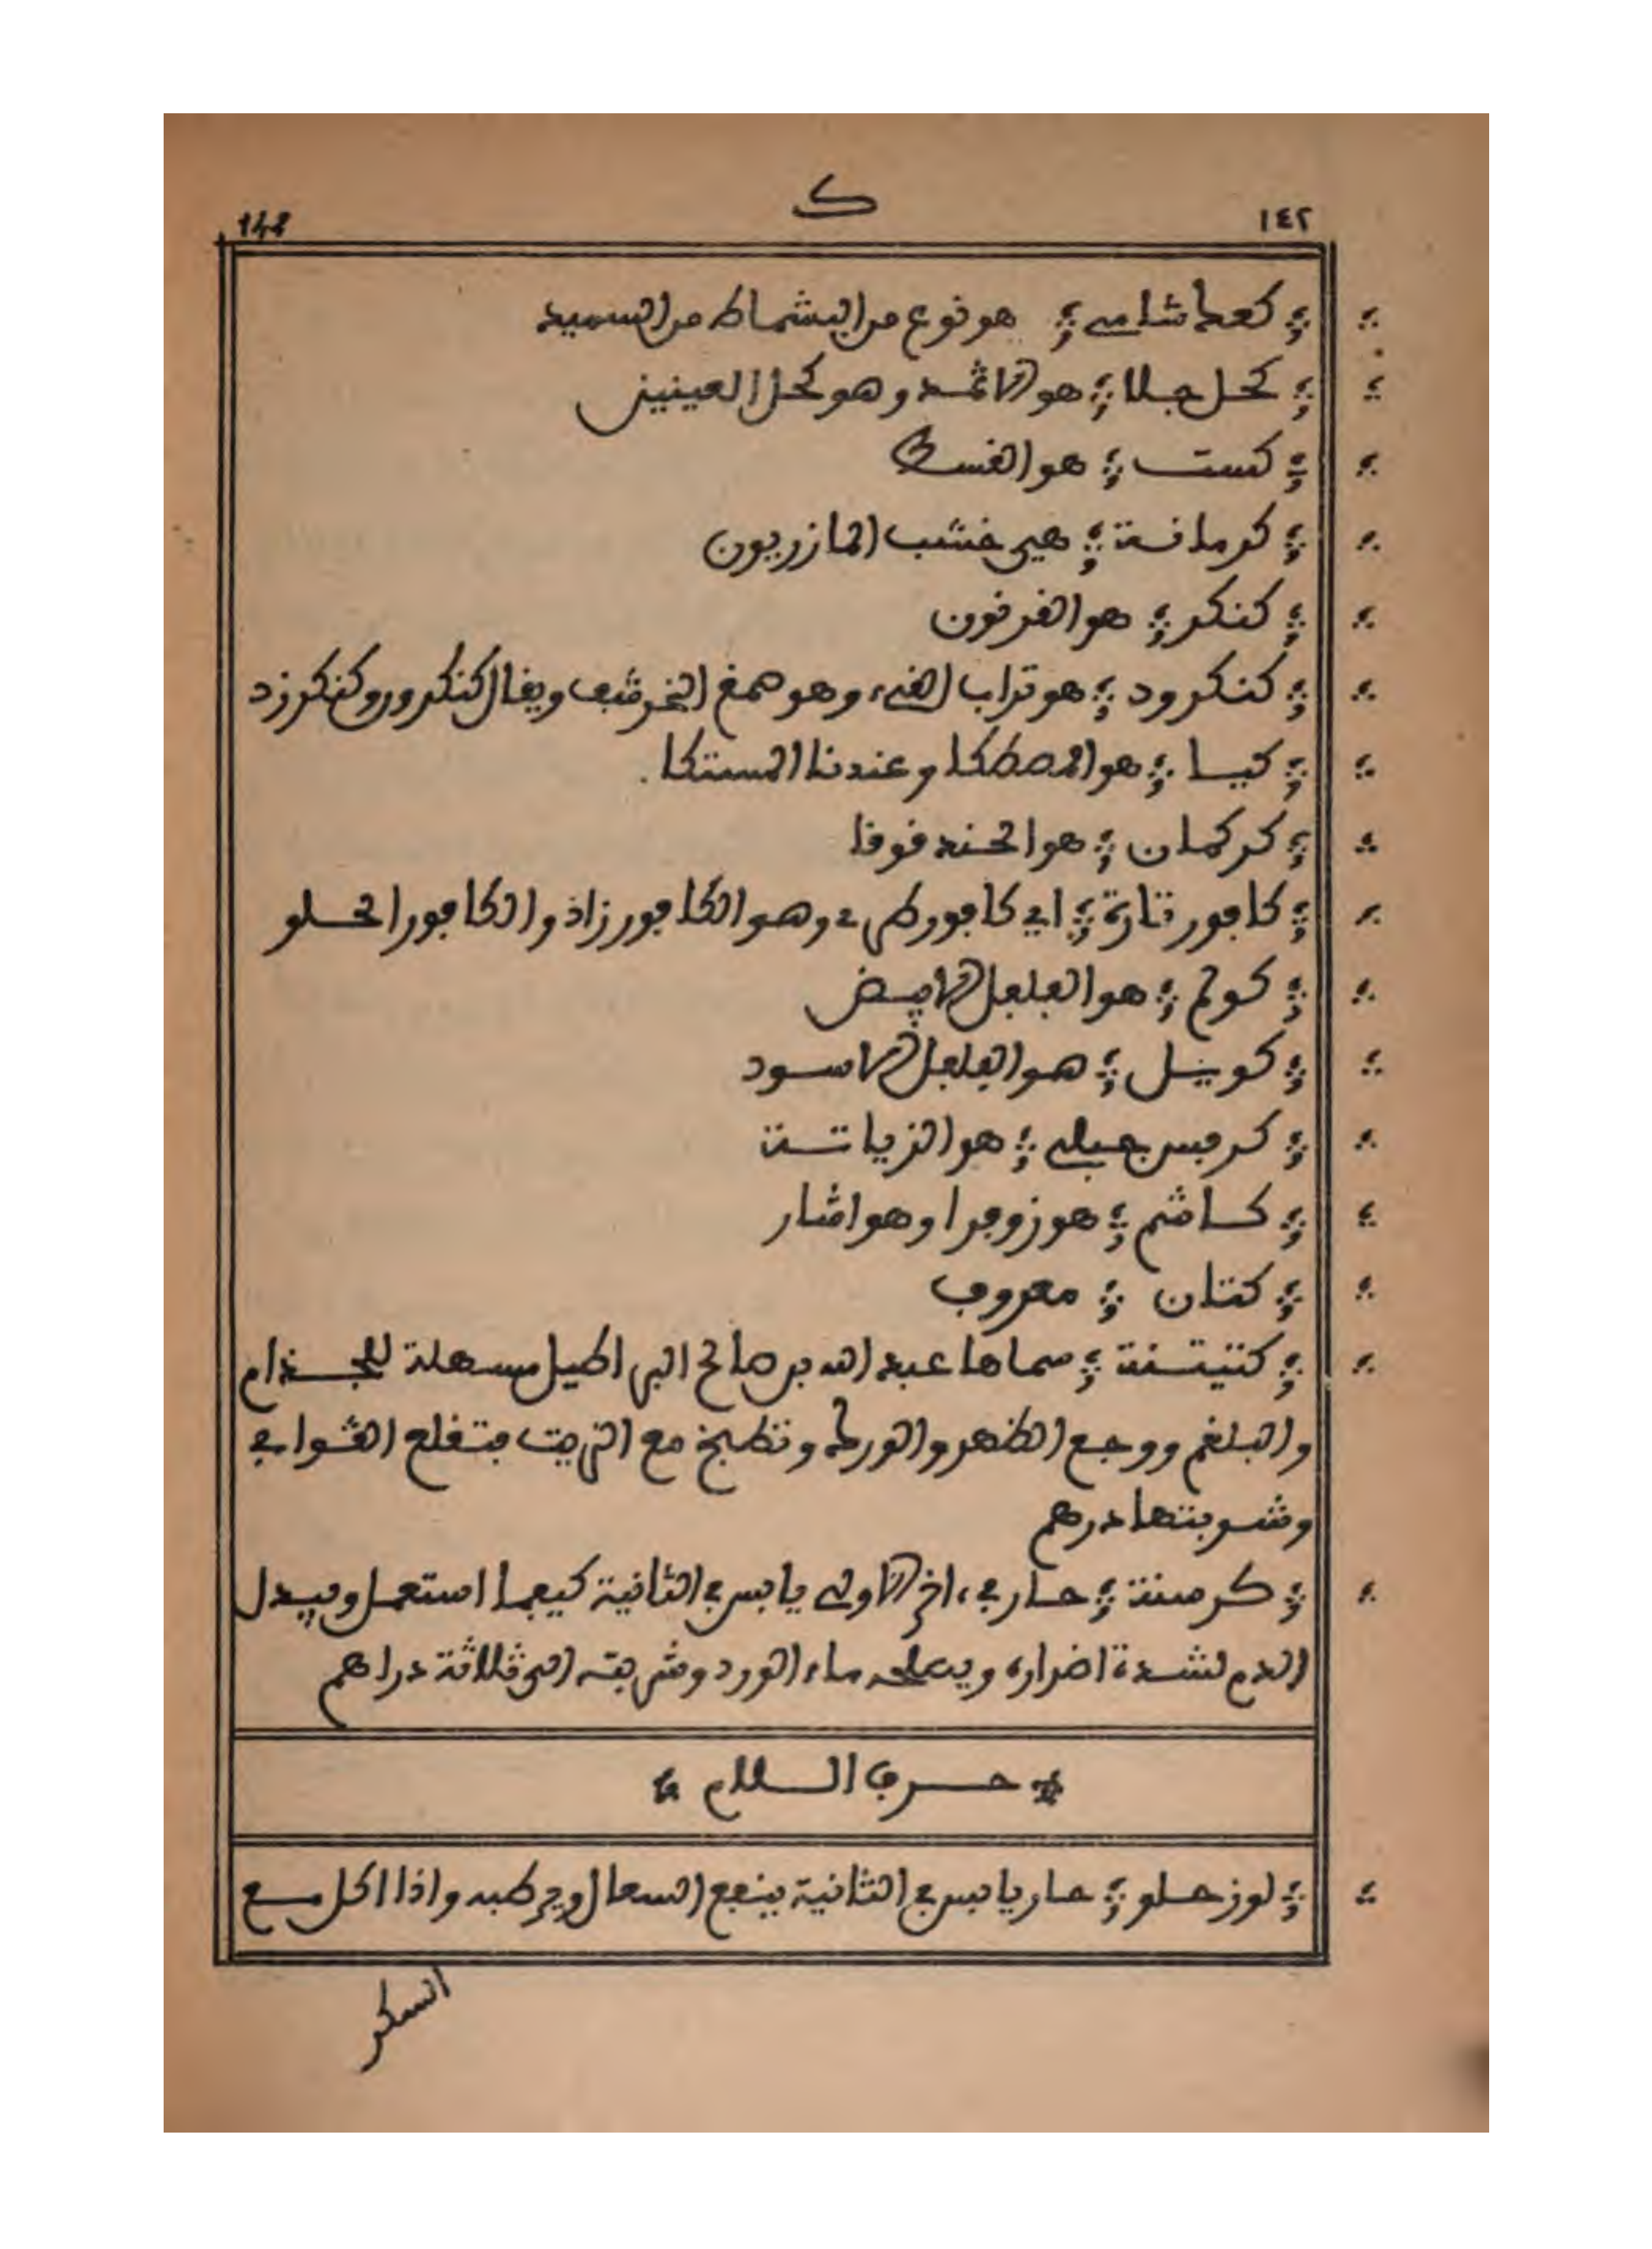 ١٤٢ ك 142
كعك شامي هو نوع من البشماط من السميد
كحل جلا هو الاثمد وهو كحل العينين
كست هو القسط
كرمانة هي خشب المازريون
كنكر هو القرنون
كنكرود هو تراب القيء وهو صمغ الخرشف ويقال كنكرورو وكنكرزد
كيا هو المصطكا وعندنا المستكا.
كركمان هو الحندقوقا
كافور تازة اي كافور طري وهو الكافور زاد والكافور الحلو
كوتم هو الفلفل الابيض
كويفل هو الفلفل الاسود
كرفس جبلي هو الزياتة
كاشم هو زوفرا وهو اشار
كتان معروف
كتيتنة سماها عبد الله بن صالح البراطيل مسهلة للجذام
والبلغم ووجع الظهر والورك وتطبخ مع الزيت فتقلع القوابي
وشربتها درهم
كرسنة حار في اخر الاولى يابس في الثانية كيفما استعمل ويبدل
الدم لشدة اضراره ويصلحه ماء الورد وشربته الى ثلاثة دراهم
حرف اللام
لوز حلو حار يابس في الثانية ينفع السعال ويرطبه واذا اكل مع
السكر